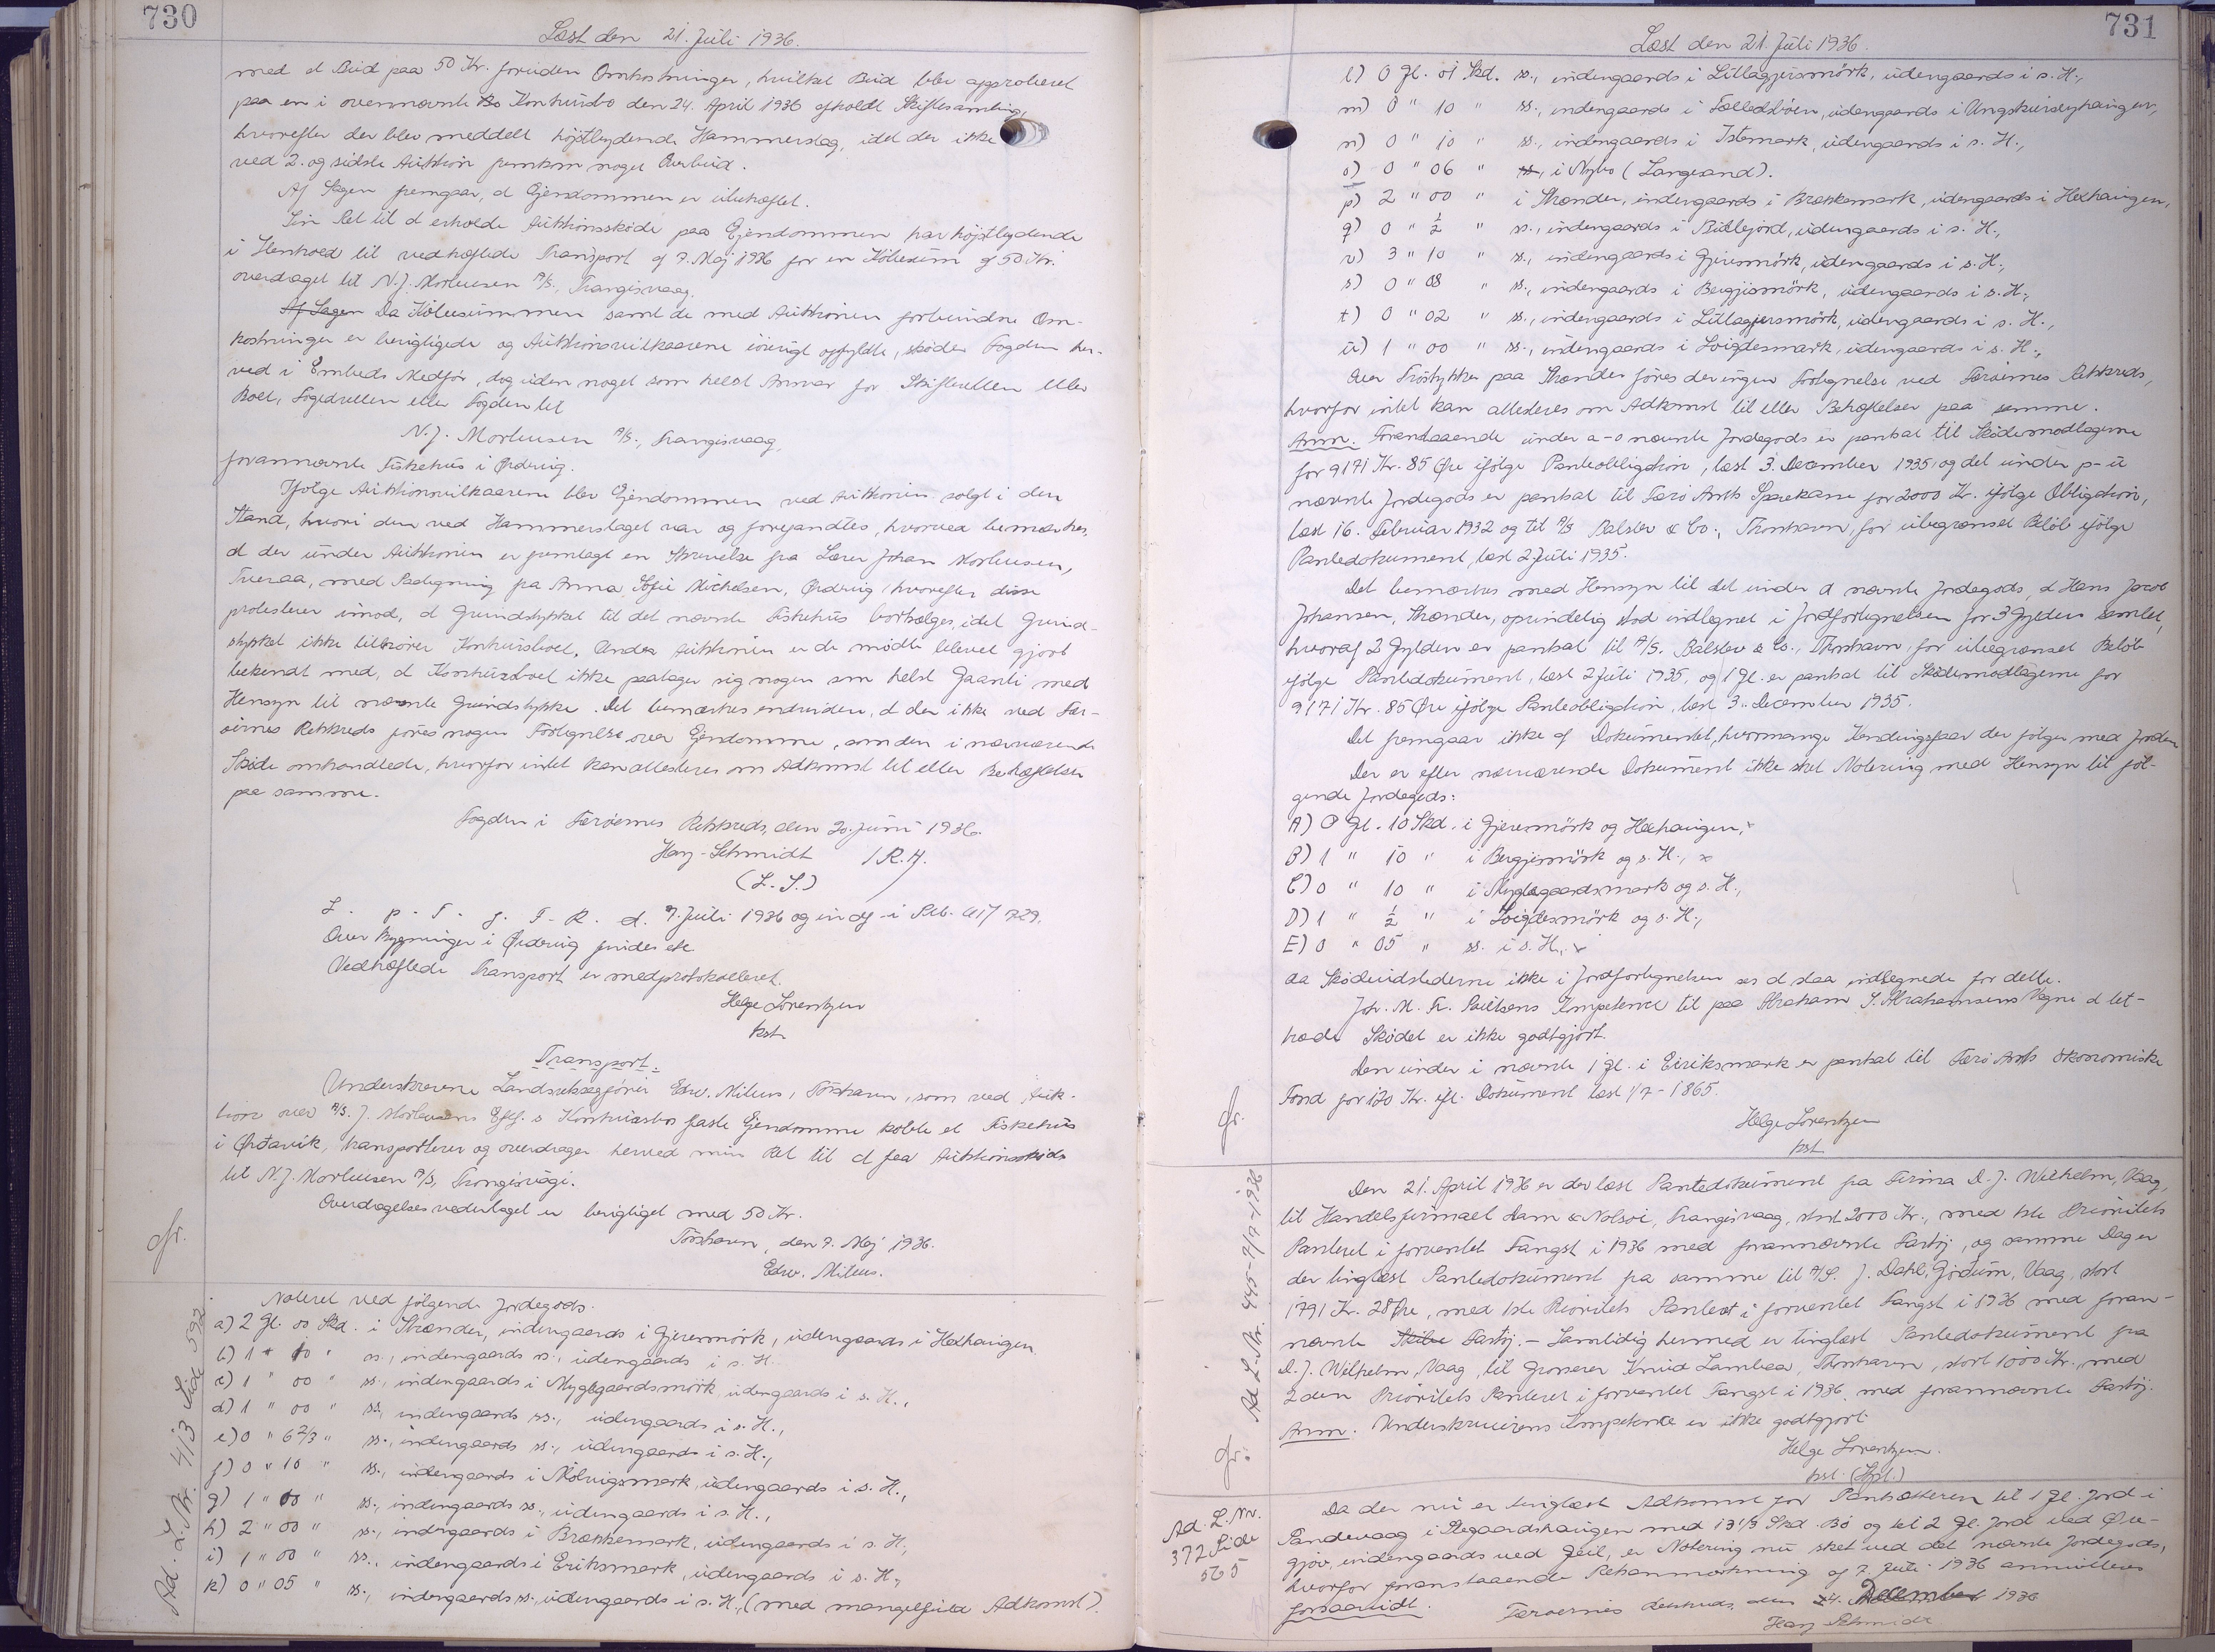 730
Læst den 21. Juli 1936.
med et Bud paa 50 Kr. foruden Omkostninger, hvilket Bud blev approberet
paa en i ovennævnte Ko Konkursbo den 24. April 1936 afholdt Skiftesamling,
hvorefter der blev meddelt højstbydende Hammerslag, idet der ikke
ved 2. og sidste Auktion fremkom noget Overbud.
Af Sagen fremgaar, at Ejendommen er ubehæftet.
Sin Ret til at erholde Auktionsskøde paa Ejendommen har højstbydende
i Henhold til vedhæftede Transport af 7. Maj 1936 for en Købesum af 50 Kr.
overdraget til N.J. Mortensen A/S., Trangisvaag.
Af Sagen Da Købesummen samt de med Auktionen forbundne Om-
kostninger er berigtigede og Auktionsvilkaarene iøvrigt opfyldte, skøder Fogden her-
ved i Embeds Medfør, dog uden noget som helst Ansvar for Skifteretten eller
Boet, Fogedretten eller Fogden til
N.J. Mortensen A/S., Trangisvaag,
forannævnte Fiskehus i Ørdevig.
Ifølge Auktionsvilkaarene blev Ejendommen ved Auktionen solgt i den
Stand, hvori den ved Hammerslaget var og forefandtes, hvorved bemærkes,
at der under Auktionen er fremlagt en Skrivelse fra Lærer Johan Mortensen,
Tveraa, med Paategning fra Anna Sofie Michelsen, Ørdevig, hvorefter disse
protesterer imod, at Grundstykket til det nævnte Fiskehus bortsælges, idet Grund-
stykket ikke tilhører Konkursboet. Under Auktionen er de mødte blevet gjort
bekendt med, at Konkursboet ikke paatager sig nogen som helst Gaanti med
Hensyn til nævnte Grundstykke. Det bemærkes endvidere, at der ikke ved Fær-
øernes Retskreds føres nogen Fortegnelse over Ejendomme, som den i nærværende
Skøde omhandlede, hvorfor intet kan attesteres om Adkomst til eller Behæftelser
paa samme.
Fogden i Færøernes Retskreds, den 20. Juni 1936.
Hary-Schmidt / R.H.
(L.S.)
L. p. T. f. F. R. d. 7. Juli 1936 og indf. i Prb. a17 729.
Over Bygninger i Ørdevig findes etc
Vedhæftede Transport er medprotokolleret.
Helge Lorentzen
kst.
Transport.
Underskrevne Landsretssagfører Edw. Mitens, Tórshavn, som ved Auk-
tion over A/S. J. Mortensens Eftf.s Konkursbos faste Ejendomme købte et Fiskehus
i Ørðavík, transporterer og overdrager herved min Ret til at faa Auktionsskøde
til N.J. Mortensen A/S, Trongisvági.
Overdragelsesvederlaget er berigtiget med 50 Kr.
Tórshavn, den 7. Maj 1936.
Edw. Mitens.
Gr.
Ad. L. Nr. 413 Side 592.
Noteret ved følgende Jordegods.
a) 2 Gl. 00 Skd. i Skrænder, indengaards i Gjeresmørk, udengaards i Hedhaugen
b) 1 " 10 " ss., indengaards ss., udengaards i s. H.
c) 1 " 00 " ss., indengaards i Myglegaardsmørk, udengaards i s. H.,
d) 1 " 00 " ss., indengaards ss., udengaards i s. H.,
e) 0 " 6 2/3 " ss., indengaards ss., udengaards i s. H.,
f) 0 " 10 " ss., indengaards i Mølvigsmark, udengaards i s. H.,
g) 1 " 00 " ss., indengaards ss., udengaards i s. H.,
h) 2 " 00 " ss., indengaards i Brækkemark, udengaards i s. H.,
i) 1 " 00 " ss., indengaards i Eriksmark, udengaards i s. H.,
k) 0 " 05 " ss., indengaards ss., udengaards i s. H., (med mangelfuld Adkomst).
731
Læst den 21. Juli 1936.
l) 0 Gl. 01 Skd. ss., indengaards i Litlagjersmørk, udengaards i s. H.,
m) 0 " 10 " ss., indengaards i Fælledsbøen, udengaards i
n) 0 " 10 " ss., indengaards i Istemark, udengaards i s. H.,
o) 0 " 06 " ss., i Nybo (Langesand).
p) 2 " 00 " i Skrænder, indengaards i Brækkemark, udengaards i Hedhaugen,
q) 0 " 1/2 " ss., indengaards i Bitlegjord, udengaards i s. H.,
r) 3 " 10 " ss., indengaards i Gjeresmørk, udengaards i s. H.,
s) 0 " 08 " ss., indengaards i Bergjismørk, udengaards i s. H.,
t) 0 " 02 " ss., indengaards i Litlagjersmørk, udengaards i s. H.,
u) 1 " 00 " ss., indengaards i Loigdesmark, udengaards i s. H.,
Over Trøstykker paa Skrænder føres der ingen Fortegnelse ved Færøernes Retskreds,
hvorfor intet kan attesteres om Adkomst til eller Behæftelser paa samme.
Anm. Foranstaaende under a-o nævnte Jordegods er pantsat til Skødemodtagerne
for 9171 Kr. 85 Øre ifølge Panteobligation, læst 3. December 1935, og det under p-u
nævnte Jordegods er pantsat til Færø Amts Sparekasse for 2000 Kr. ifølge Obligation,
læst 16. Februar 1932 og til A/S Balslev & Co., Thorshavn, for ubegrænset Beløb ifølge
Pantedokument, læst 2 Juli 1935.
Det bemærkes med Hensyn til det under a nævnte Jordegods, at Hans Jacob
Johansen, Skrænder, oprindelig stod indtegnet i Jordfortegnelsen for 3 Gylden samlet,
hvoraf 2 Gylden er pantsat til A/S. Balslev & Co., Thorshavn, for ubegrænset Beløb
ifølge Pantedokument, læst 2 Juli 1935, og 1 Gl. er pantsat til Skødemodtagerne for
9171 Kr. 85 Øre ifølge Panteobligation, læst 3. December 1935.
Det fremgaar ikke af Dokumentet, hvormange Kendingsfaar der følger med Jorden
Der er efter nærværende Dokument ikke sket Notering med Hensyn til føl-
gende Jordegods:
A) 0 Gl. 10 Skd. i Gjeresmørk og Hedhaugen, x
B) 1 " 10 " i Bergjesmørk og s. H., x
C) 0 " 10 " i Myglegaardsmark og s. H.,
D) 1 " 1/2 " i Loigdesmørk og s. H.,
E) 0 " 05 " ss. i s. H., x
da Skødeudstederne ikke i Jordfortegnelsen ses at staa indtegnede for dette.
Joh. M. Fr. Poulsens Kompetence til paa Abraham S. Abrahamsens Vegne at til-
træde Skødet er ikke godtgjort.
Den under i nævnte 1 Gl. i Eiriksmark er pantsat til Færø Amts økonomiske
Fond for 120 Kr. ifl. Dokument læst 1/7 - 1865.
Helge Lorentzen
kst.
Gr.
Ad L. Nr. 445-7/7-1936
Den 21. April 1936 er der læst Pantedokument fra Firma D. J. Wilhelm, Vaag,
til Handelsfirmaet Dam & Nolsøi, Trangisvaag, stort 2000 Kr., med 1ste Prioritets
Panteret i forventet Fangst i 1936 med forannævnte Fartøj, og samme Dag er
der tinglæst Pantedokument fra samme til A/S. J. Dahl, Vaag, stort
1791 Kr. 28 Øre, med 1ste Prioritets Panteret i forventet Fangst i 1936 med foran-
nævnte Fartøj. - Samtidig hermed er tinglæst Pantedokument fra
D. J. Wilhelm, Vaag, til Grosserer Knud Lambaa, Thorshavn, stort 1000 Kr., med
2den Prioritets Panteret i forventet Fangst i 1936 med forannævnte Fartøj.
Anm. Underskriverens Kompetence er ikke godtgjort
Helge Lorentzen.
kst. (Spl.)
Gr.
Ad. L. Nr.
372 Side
565
Da der nu er tinglæst Adkomst for Pantsætteren til 1 Gl. Jord i
Sandevaag i Regaardshaugen med 13 1/3 Skd. Bø og til 2 Gl. Jord ved Øre-
gjov, indengaards ved Geil, er Notering nu sket ved det nævnte Jordegods,
hvorfor foranstaaende Retsanmærkning af 7. Juli 1936 annulleres
forsaavidt.
Færøernes Retskreds, den 24. December 1936
Hary Schmidt